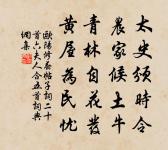 太史頒時令
農家候土牛
青林自花發
黃屋為民忧
歐陽修春帖子詞二十
首六夫人合五首詞典
網集